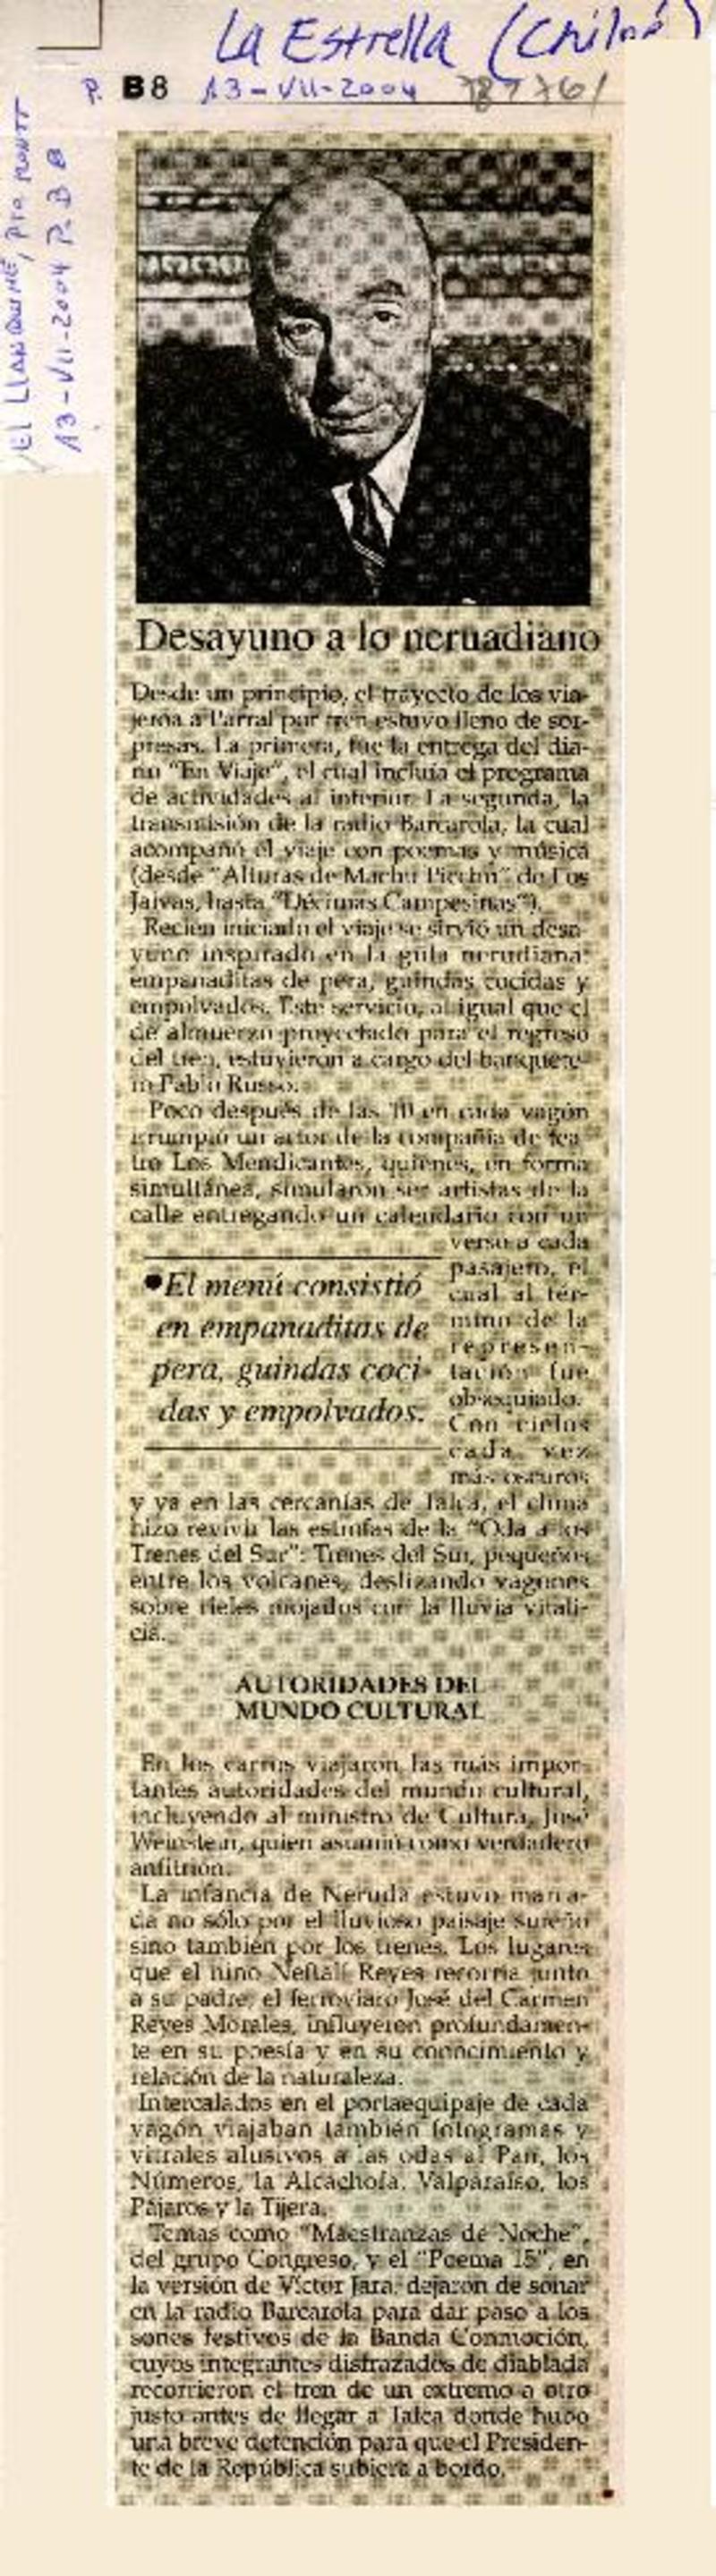 La Estrella (Chiloé)
P. B8 13-VII-2004
El LLANQUIHUE, Pto MONTT
13-VII-2004 P. B 8
Desayuno a lo neruadiano
Desde un principio, el trayecto de los via-
jeros a Parral por tren estuvo lleno de sor-
presas. La primera, fue la entrega del dia-
rio "En Viaje", el cual incluía el programa
de actividades al interior. La segunda, la
transmisión de la radio Barcarola, la cual
acompañó el viaje con poemas y música
(desde "Alturas de Machu Picchu" de Los
Jaivas, hasta "Décimas Campesinas").
Recién iniciado el viaje se sirvió un desa-
yuno inspirado en la gula nerudiana:
empanaditas de pera, guindas cocidas y
empolvados. Este servicio, al igual que el
de almuerzo proyectado para el regreso
del tren, estuvieron a cargo del banquete-
ro Pablo Russo.
Poco después de las 10 en cada vagón
irrumpió un actor de la compañía de tea-
tro Los Mendicantes, quienes, en forma
simultánea, simularon ser artistas de la
calle entregando un calendario con un
verso a cada
pasajero, el
cual al tér-
mino de la
represen-
tación fue
obsequiado.
Con cielos
cada vez
más oscuros
•El menú consistió
en empanaditas de
pera, guindas coci-
das y empolvados.
y ya en las cercanías de Talca, el clima
hizo revivir las estrofas de la "Oda a los
Trenes del Sur": Trenes del Sur, pequeños
entre los volcanes, deslizando vagones
sobre rieles mojados con la lluvia vitali-
cia.
AUTORIDADES DEL
MUNDO CULTURAL
En los carros viajaron las más impor-
tantes autoridades del mundo cultural,
incluyendo al ministro de Cultura, José
Weinstein, quien asumió como verdadero
anfitrión.
La infancia de Neruda estuvo marca-
da no sólo por el lluvioso paisaje sureño
sino también por los trenes. Los lugares
que el niño Neftalí Reyes recorría junto
a su padre, el ferroviaro José del Carmen
Reyes Morales, influyeron profundamen-
te en su poesía y en su conocimiento y
relación de la naturaleza.
Intercalados en el portaequipaje de cada
vagón viajaban también fotogramas y
vitrales alusivos a las odas al Pan, los
Números, la Alcachofa, Valparaíso, los
Pájaros y la Tijera.
Temas como "Maestranzas de Noche",
del grupo Congreso, y el "Poema 15", en
la versión de Víctor Jara, dejaron de sonar
en la radio Barcarola para dar paso a los
sones festivos de la Banda Conmoción,
cuyos integrantes disfrazados de diablada
recorrieron el tren de un extremo a otro
justo antes de llegar a Talca donde hubo
una breve detención para que el Presiden-
te de la República subiera a bordo.